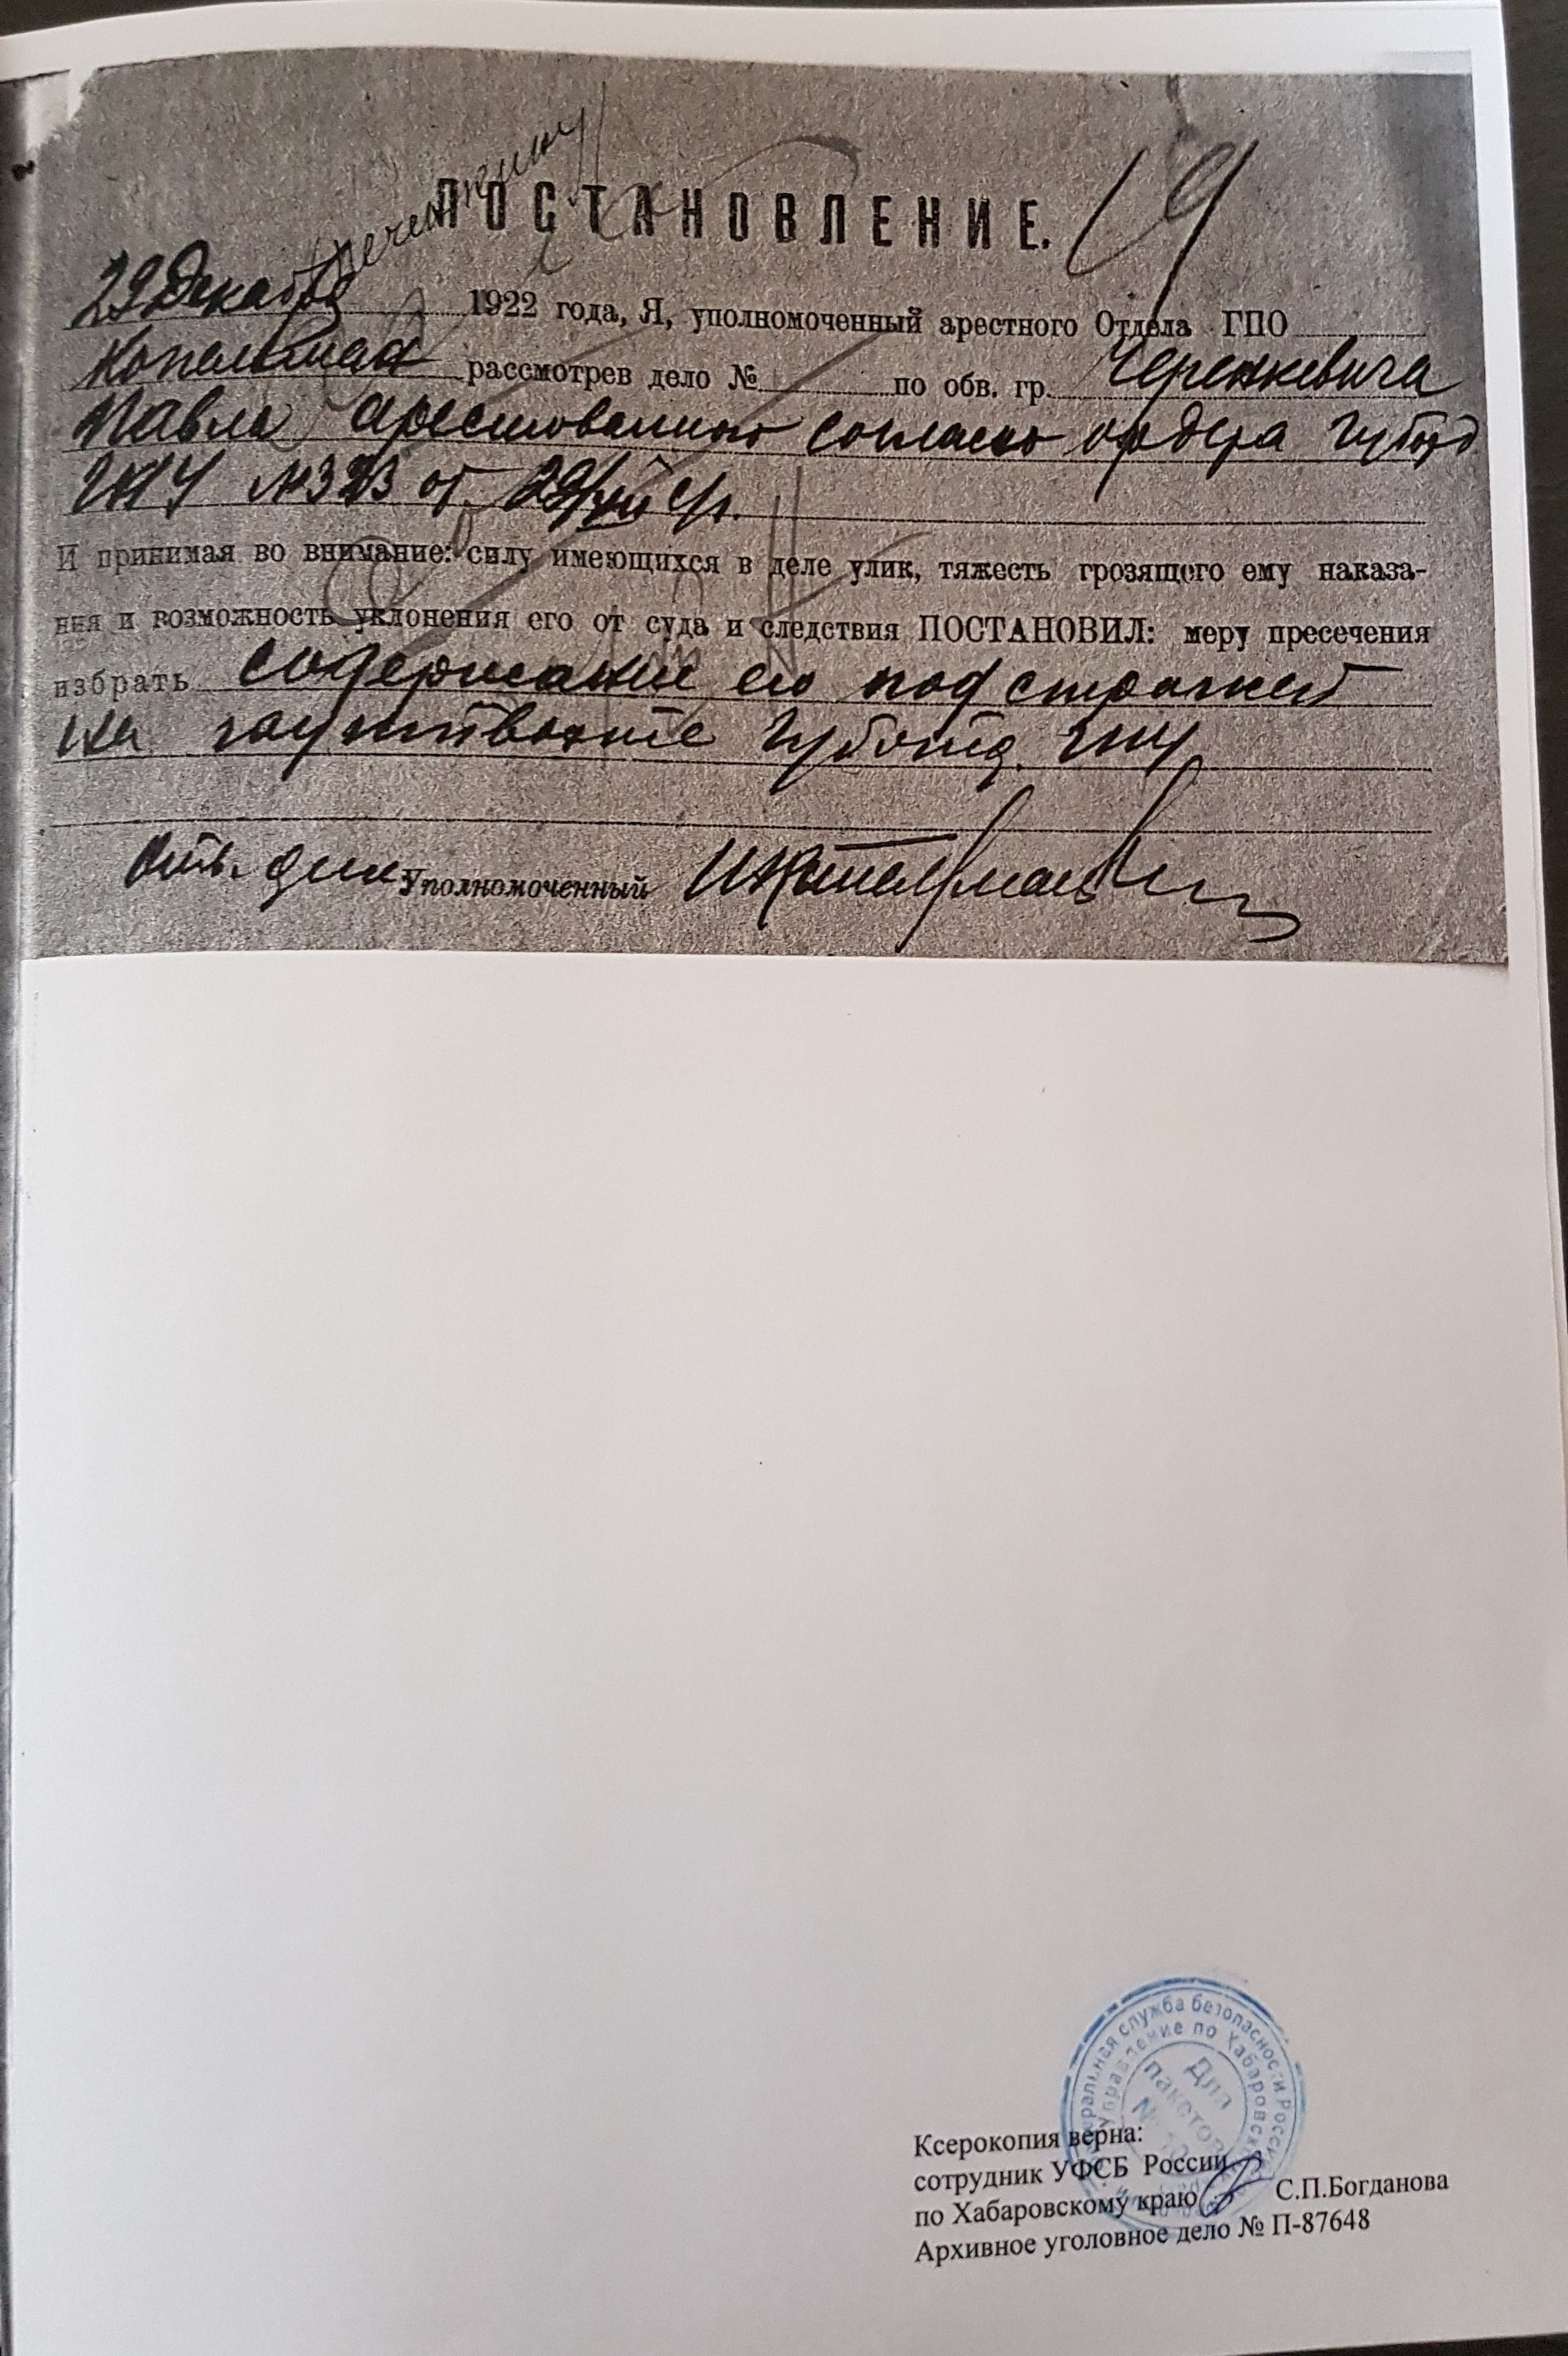 19
ПОСТАНОВЛЕНИЕ.
29 Декабря 1922 года, Я, уполномоченный арестного Отдела ГПО
рассмотрев дело № по обв. гр. Черенкевича
Павла арестованного согласно ордера Губотд
ГПУ № от 29/XII с/г.
И принимая во внимание: силу имеющихся в деле улик, тяжесть грозящего ему наказа-
ния и возможность уклонения его от суда и следствия ПОСТАНОВИЛ: меру пресечения
избрать содержание его под стражей
на гауптвахте Губотд. ГПУ
Отв. деж уполномоченный
Федеральная служба безопасности России
Управление по Хабаровскому краю
Для
пакетов
№
Ксерокопия верна:
сотрудник УФСБ России
по Хабаровскому краю С.П.Богданова
Архивное уголовное дело № П-87648